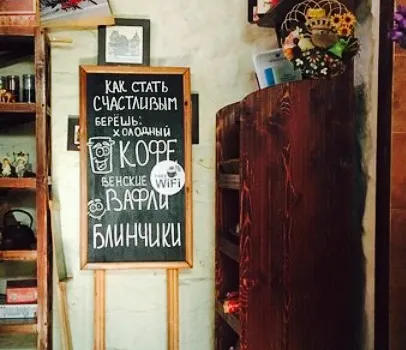 КАК СТАТЬ
СЧАСТЛИВЫМ
БЕРЁШЬ:
ХОЛОДНЫЙ
КОФЕ
FREE
WiFi
ВЕНСКИЕ
ВАФЛИ
БЛИНЧИКИ